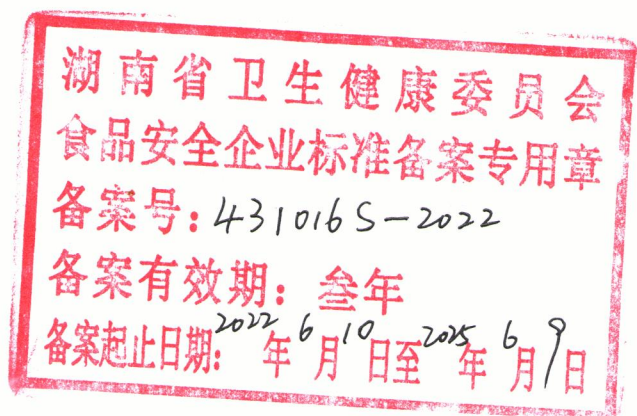 湖南省卫生健康委员会
食品安全企业标准备案专用章
备案号：431016S-2022
备案有效期：叁年
备案起止日期：2022年6月10日至2025年6月9日